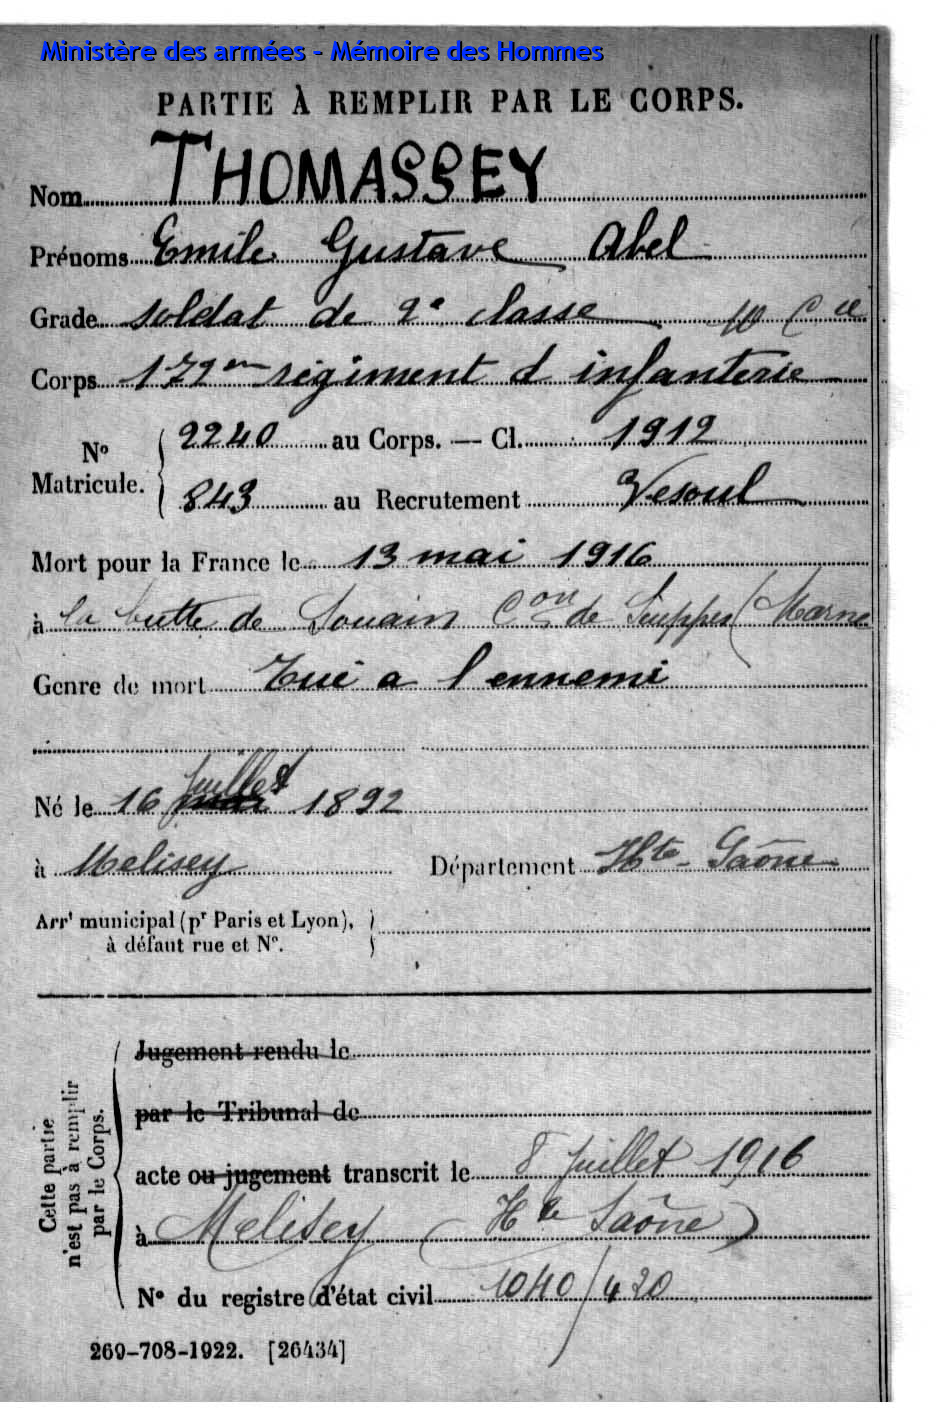 Ministère des armées - Mémoire des Hommes
PARTIE À REMPLIR PAR LE CORPS.
Nom THOMASSEY
Prénoms Emile Gustave Abel
Grade soldat de 2e classe 10 Cie
Corps 172me régiment d infanterie
No Matricule. 2240 au Corps. — Cl. 1912
843 au Recrutement Vesoul
Mort pour la France le 13 mai 1916
à la butte de Souain Con de Suippes (Marne
Genre de mort Tué a l ennemi
Né le 16 juillet 1892
à Melisey Département Hte-Saône
Arrt municipal (pr Paris et Lyon),
à défaut rue et No.
Cette partie n'est pas à remplir par le Corps.
Jugement rendu le
par le Tribunal de
acte ou jugement transcrit le 8 juillet 1916
à Melisey (Hte Saône)
No du registre d'état civil 1040/420
269-708-1922. [26434]